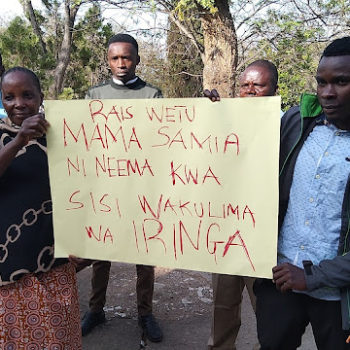 RAIS WETU
MAMA SAMIA
NI NEEMA KWA
SISI WAKULIMA
WA IRINGA